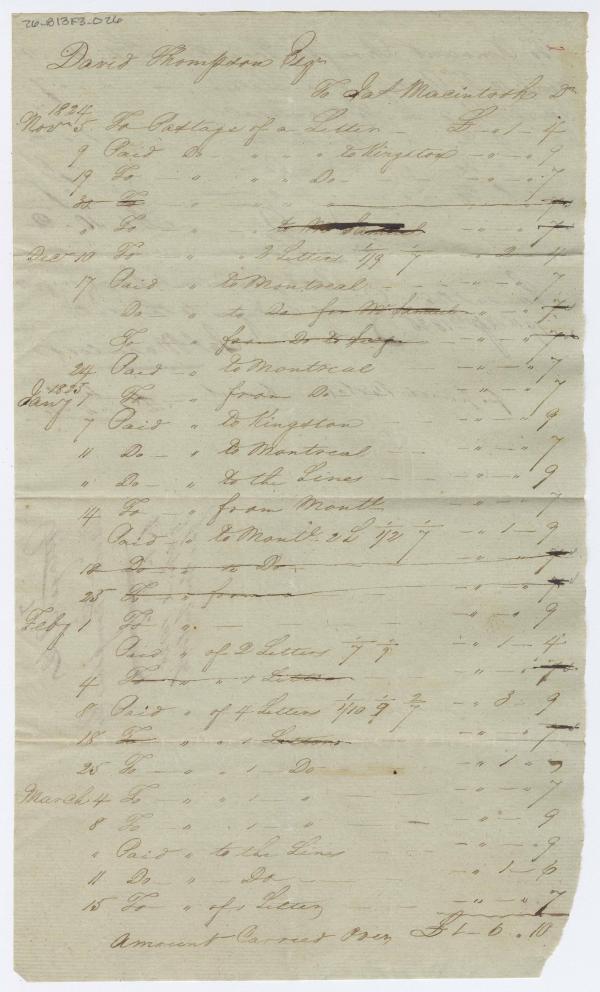 26-B13F3-026
David Thompson Esqr
To Jas Macintosh Dr
1824
Novr 5 To Postage of a Letter — £ " 1 - 4
9 Paid Do " " " to Kingston — " — " 9
19 To — " " " Do — — " — " 7
20 To — " " " " — 7
" To " to Mr Samuel — " — 7
Decr 10 To — " " 2 Letters 1/9 1/7 — " 2 — 4
17 Paid " to Montreal — — " — " 7
Do — " to Do for Mr Samuel " — " 7
To " from Do to — " — " 7
24 Paid — " to Montreal — " — " 7
1825
Jany 1 To — " from Do — — " — " 7
7 Paid " to Kingston — — " — " 9
11 Do — " to Montreal — — " — " 7
" Do — " to the Lines — — " — " 9
14 To — " from Montl — " — " 7
Paid — " to Montl 2 L 1/2 1/7 — " 1 — 9
18 Do — " to Do — " " 7
25 To — " from — " " 7
Feby 1 To " — — " — " 9
Paid " of 2 Letters 1/7 1/9 — " 1 — 4
4 To — " " 1 Letter — " — " 7
8 Paid " of 4 Letters 1/10 1/9 2/7 — " 3 — 9
18 To — " " 1 — " — " 7
25 To — " " 1 — Do — — " 1 " 7
March 4 To — " " 1 — " — " — " 7
8 To — " " 1 — " — — " — " 9
" Paid " to the Lines — — " — " 9
11 Do — " — Do — — " 1 — 6
15 To — " of 1 Letter — " — " 7
Amount Carried Over £1 — 6 . 10